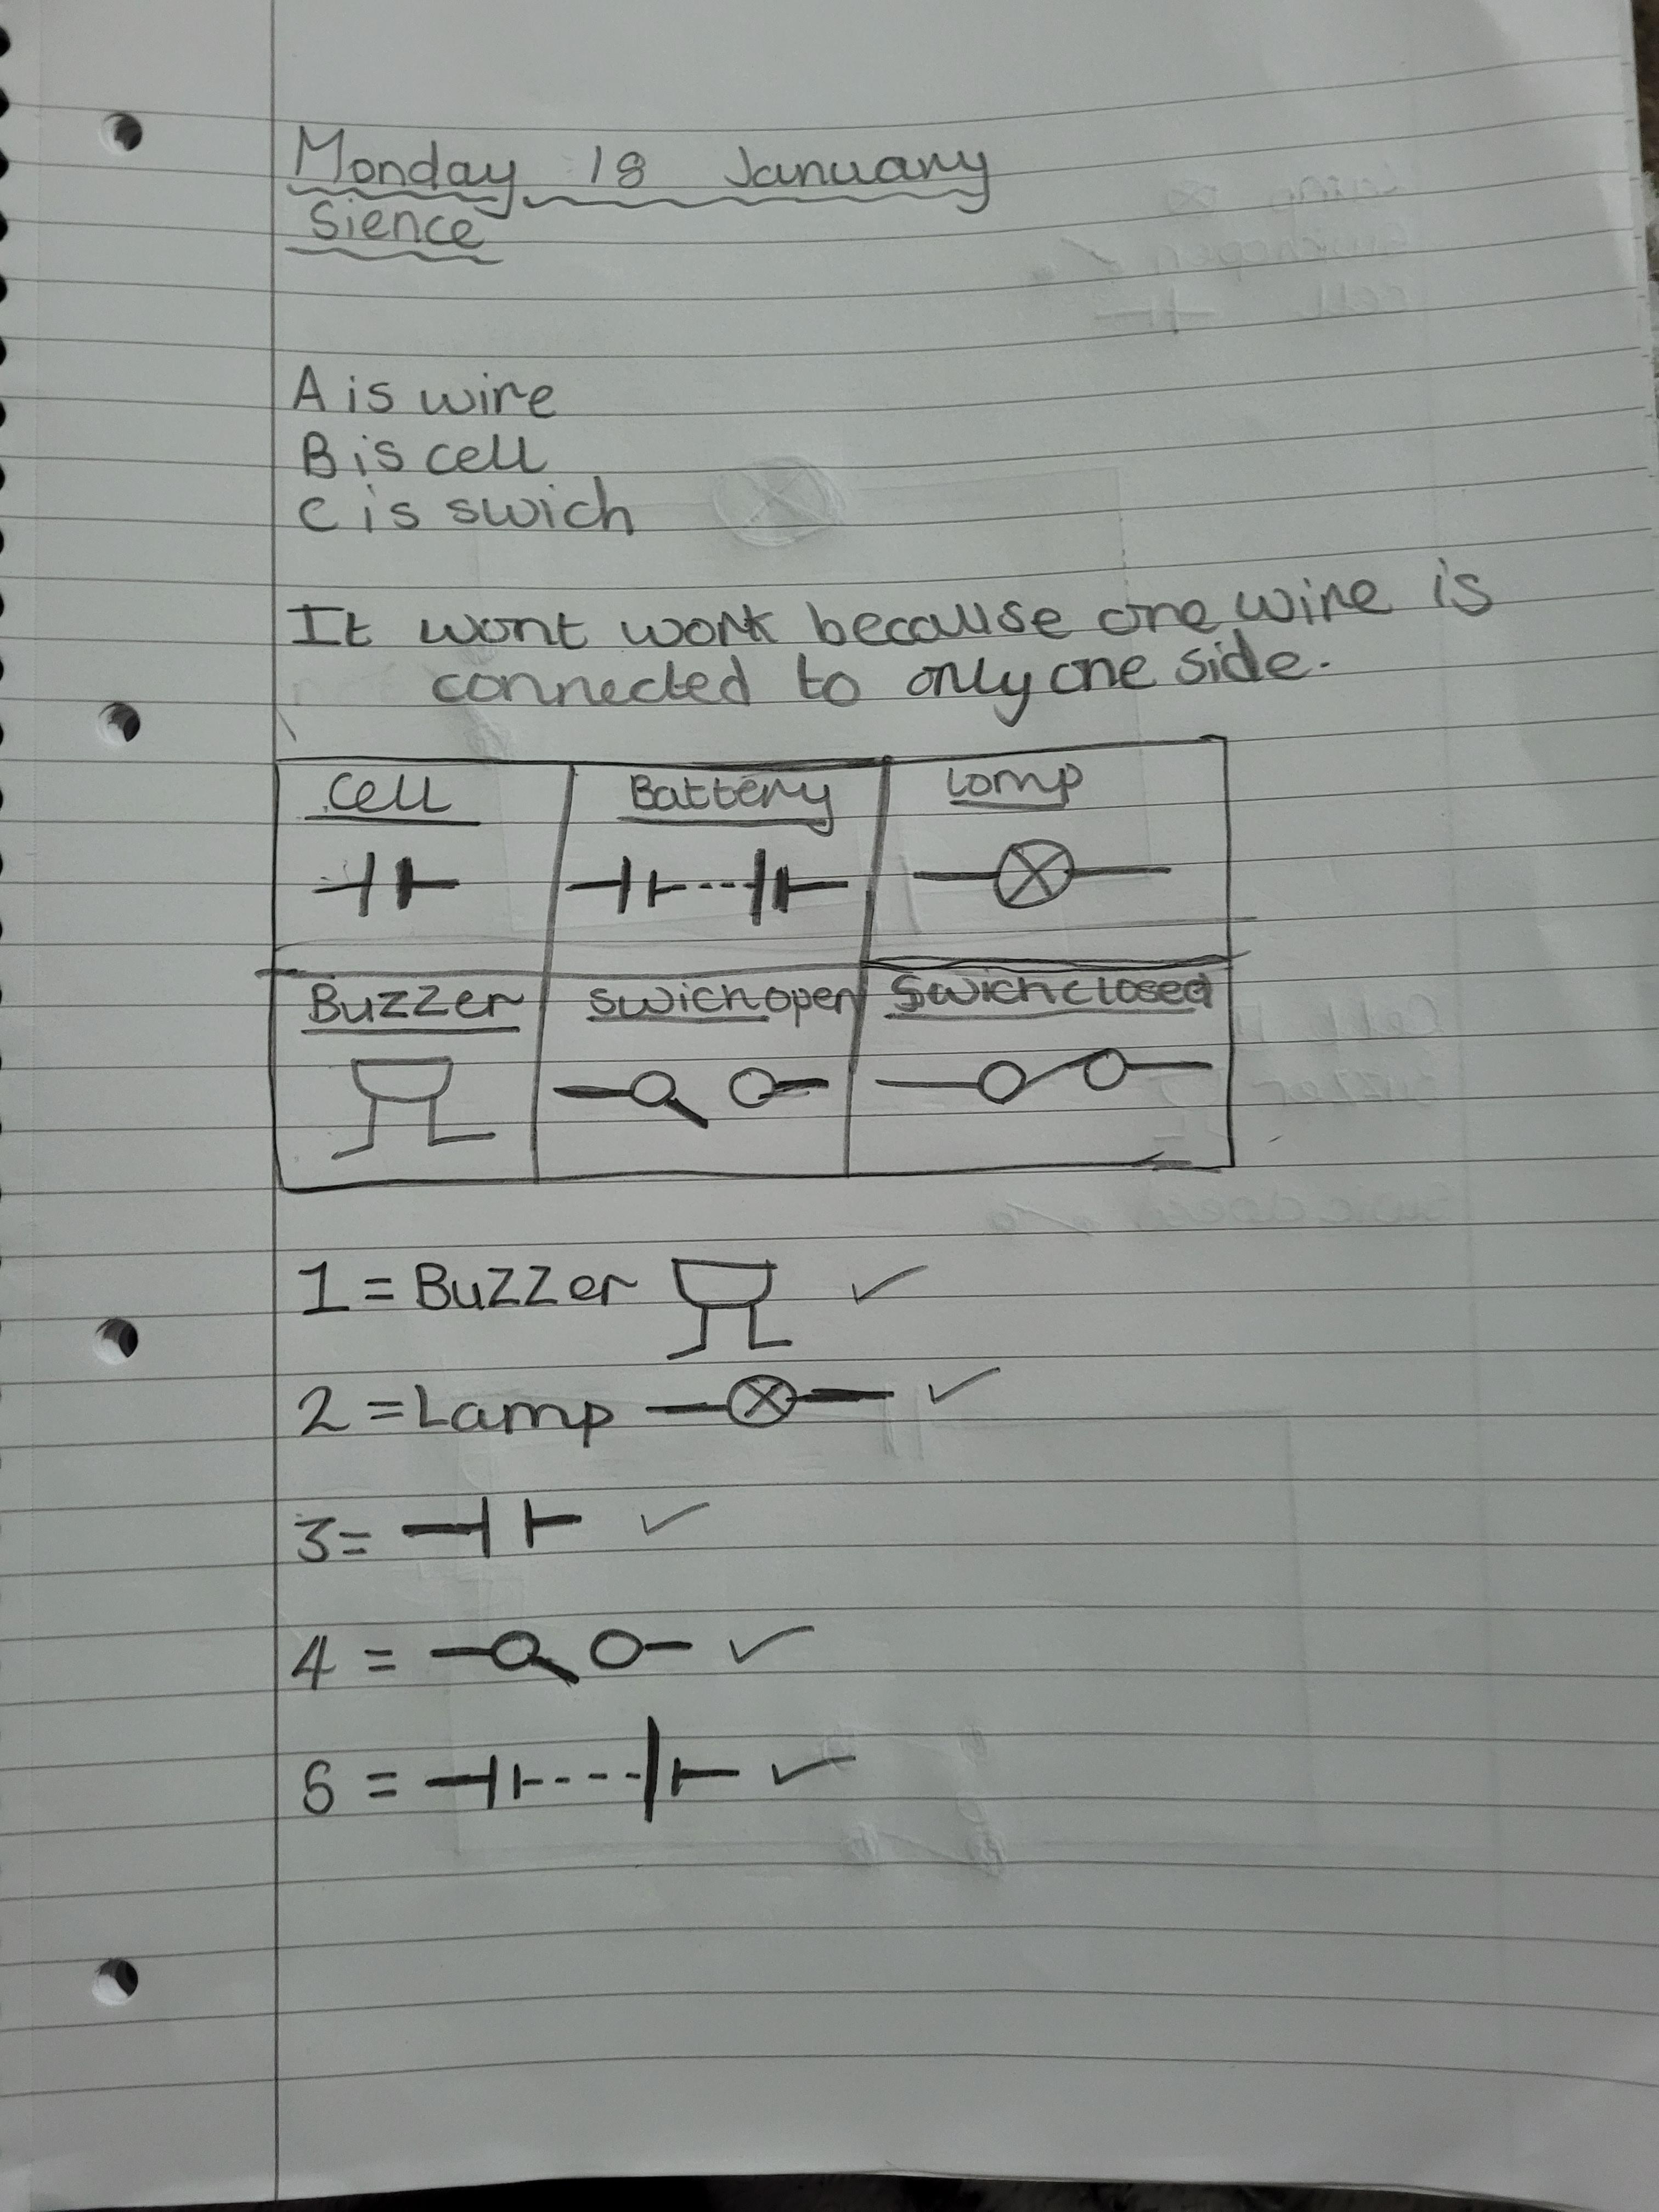 Monday 18 January
Sience
A is wire
B is cell
C is swich
It wont work because one wire is
connected to only one side.
Cell Battery Lamp
Buzzer swich open Swich closed
1 = Buzzer
2 = Lamp
3 =
4 =
6 =